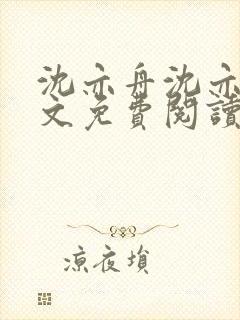 沈亦舟沈亦
文免費閱讀
涼夜塤